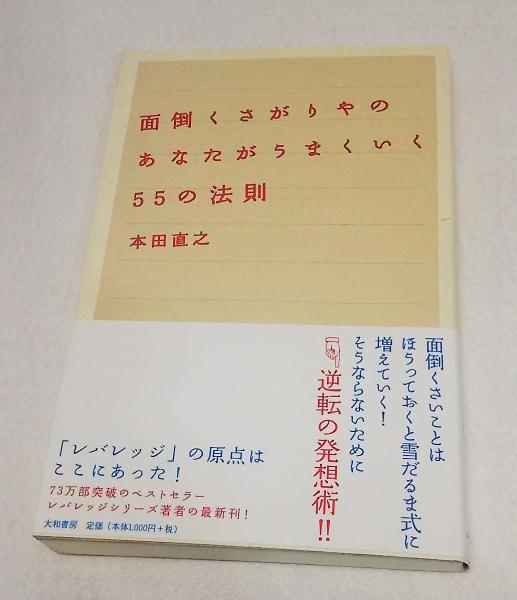 面倒くさがりやの
あなたがうまくいく
55の法則
本田直之
面倒くさいことは
ほうっておくと雪だるま式に
増えていく！
そうならないために
☟逆転の発想術!!
「レバレッジ」の原点は
ここにあった！
73万部突破のベストセラー
レバレッジシリーズ著者の最新刊！
大和書房 定価（本体1,000円+税）